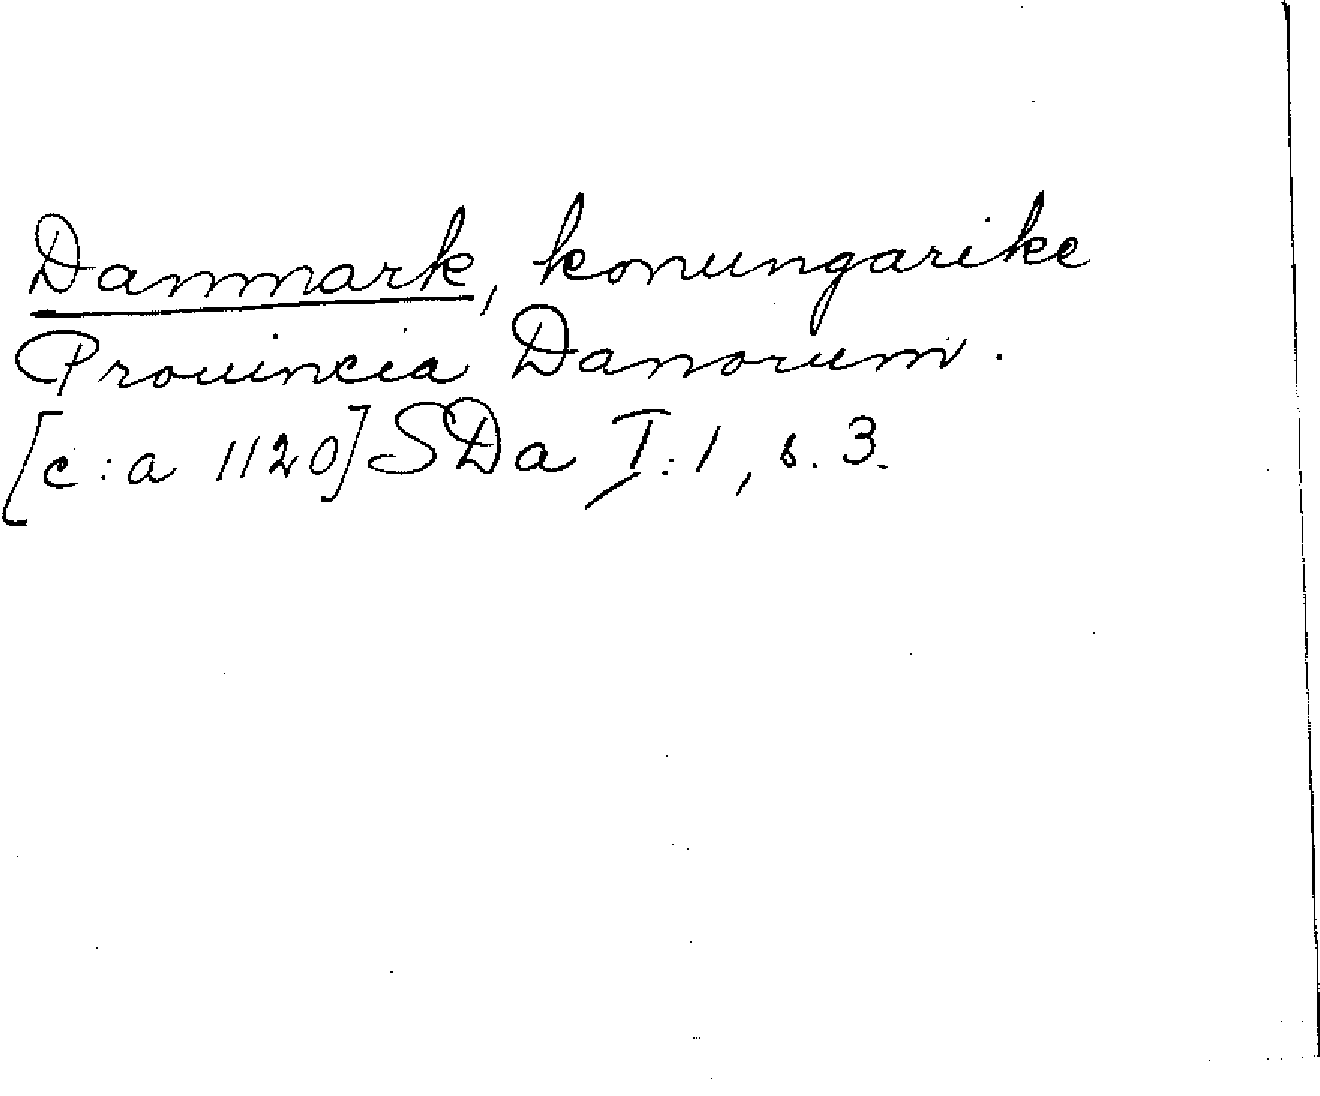 Danmark, konungarike
Prouincia Danorum.
[c:a 1120] SDa I:1, s. 3.